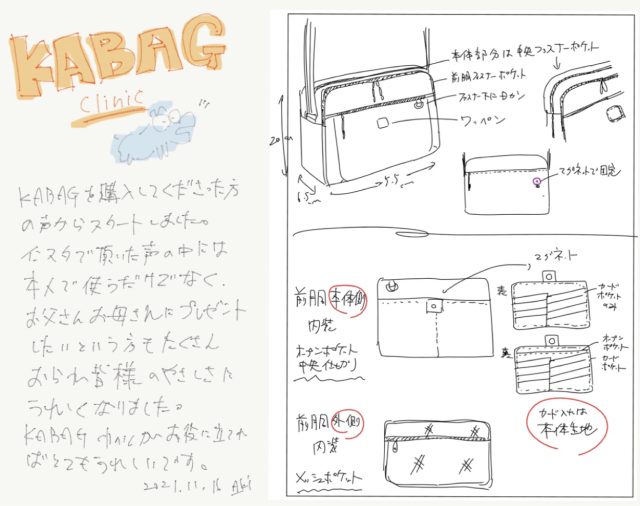 KABAG
Clinic
KABAGを購入してくださった方
の声からスタートしました。
インスタで頂いた声の中には
本人で使うだけでなく、
お父さんお母さんにプレゼント
したいという方もたくさん
おられ皆様のやさしさに
うれしくなりました。
KABAG clinicがお役に立てれ
ばとてもうれしいです。
2021.11.16
本体部分は中央ファスナーポケット
前胴ファスナーポケット
ファスナー下にDカン
ワッペン
20cm
6.5cm
マグネットで固定
マグネット
前胴本体側
内装
オープンポケット
中央仕切り
表
カード
ポケット
裏
オープン
ポケット
カード
ポケット
カード入れは
本体生地
前胴外側
内装
メッシュポケット